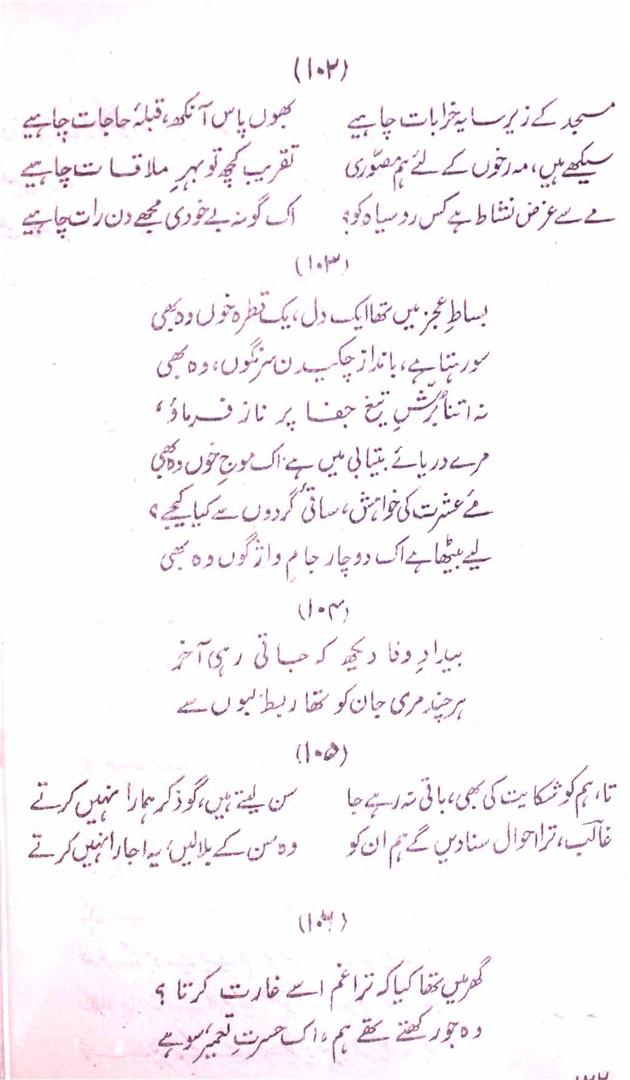 (۱۰۲)
مسجد کے زیر سایہ خرابات چاہیے بھوں پاس آنکھ، قبلۂ حاجات چاہیے
سیکھے ہیں، مہ رخوں کے لئے ہم مصوّری تقریب کچھ تو بہرِ ملاقات چاہیے
مے سے غرض نشاط ہے کس رو سیاہ کو؟ اک گونہ بے خودی مجھے دن رات چاہیے
(۱۰۳)
بساطِ عجز میں تھا ایک دل، یک قطرہ خوں وہ بھی
سو رہتا ہے، بانداز چکیدن سرنگوں، وہ بھی
نہ اتنا بُرّشِ تیغِ جفا پر ناز فرماؤ،
مرے دریائے بیتابی میں ہے اک موجِ خوں وہ بھی
مئے عشرت کی خواہش، ساقیٔ گردوں سے کیا کیجے؟
لیے بیٹھا ہے اک دو چار جامِ واژگوں وہ بھی
(۱۰۴)
بیدادِ وفا دیکھ کہ جاتی رہی آخر
ہر چند مری جان کو تھا ربط لبوں سے
(۱۰۵)
تا، ہم کو شکایت کی بھی، باقی نہ رہے جا سن لیتے ہیں، گو ذکر ہمارا نہیں کرتے
غالبؔ، ترا احوال سنا دیں گے ہم ان کو وہ سن کے بلا لیں، یہ اجارا نہیں کرتے
(۱۰۶)
گھر میں تھا کیا کہ ترا غم اسے غارت کرتا ؟
وہ جو رکھتے تھے ہم، اک حسرتِ تعمیر، سو ہے